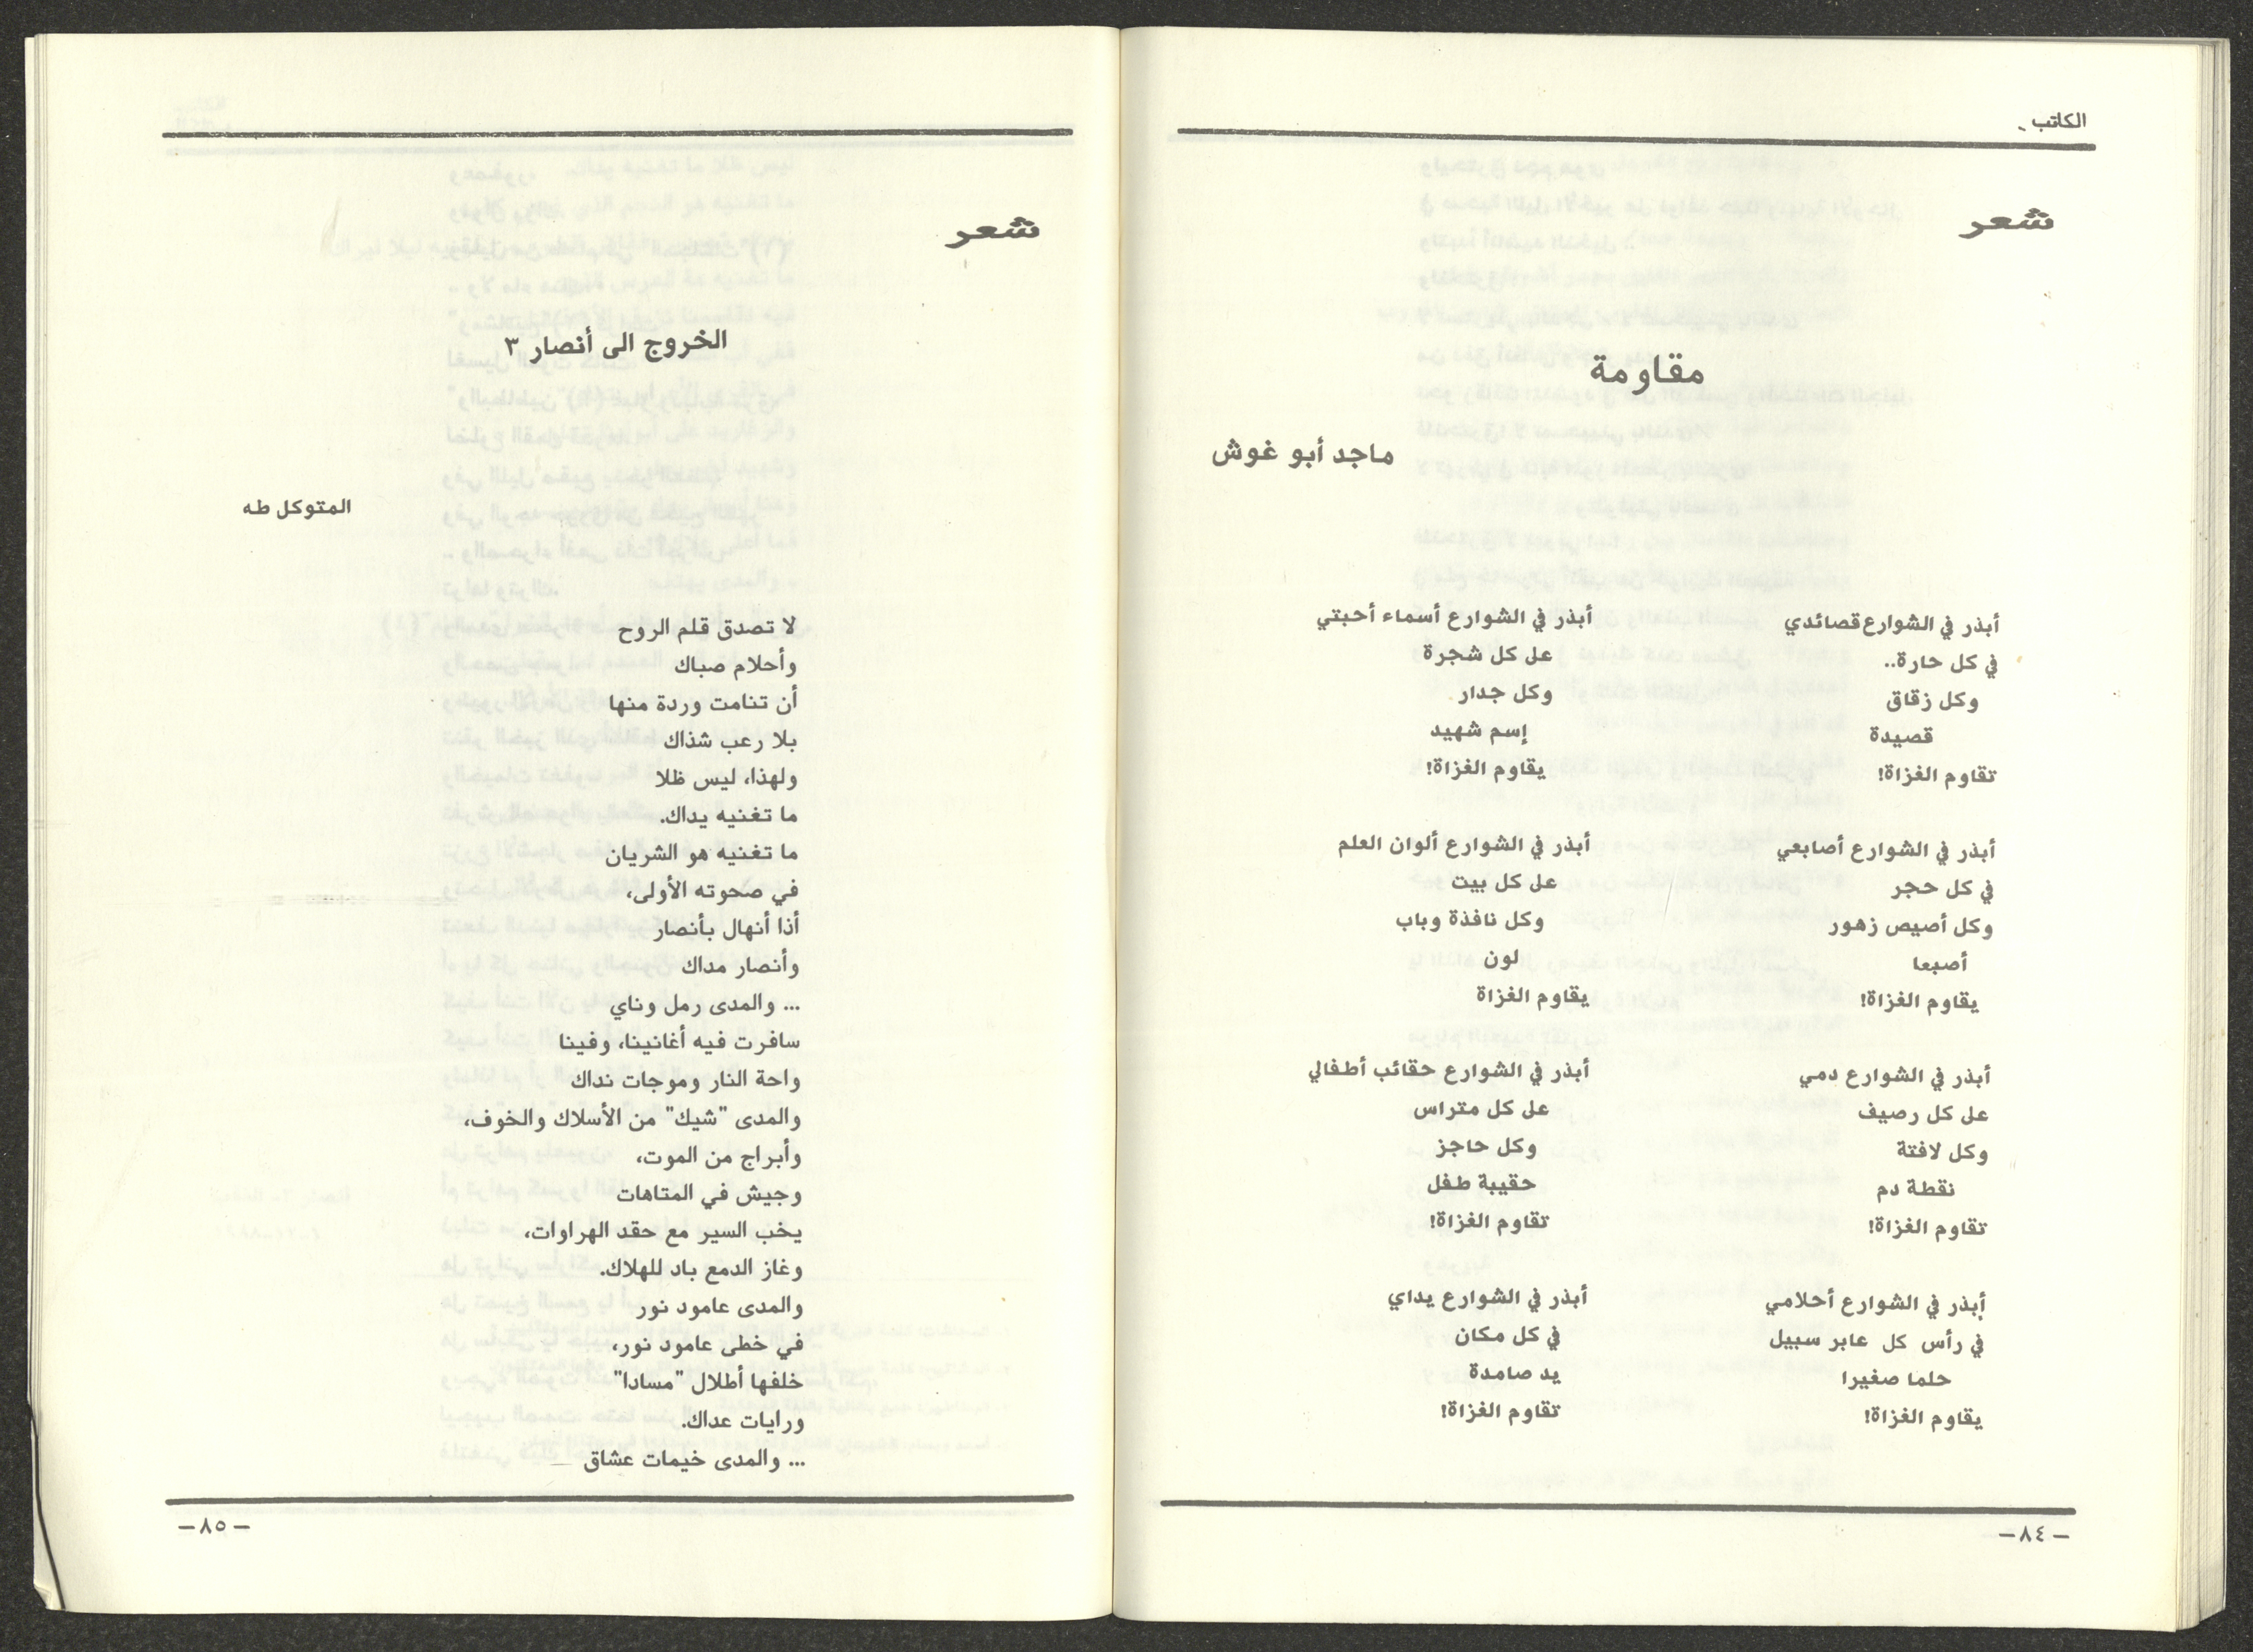 الكاتب
شعر
مقاومة
ماجد أبو غوش
أبذر في الشوارع قصائدي
في كل حارة..
وكل زقاق
قصيدة
تقاوم الغزاة!
أبذر في الشوارع أصابعي
في كل حجر
وكل أصيص زهور
أصبعا
يقاوم الغزاة!
أبذر في الشوارع دمي
على كل رصيف
وكل لافتة
نقطة دم
تقاوم الغزاة!
أبذر في الشوارع أحلامي
في رأس كل عابر سبيل
حلما صغيرا
يقاوم الغزاة!
أبذر في الشوارع أسماء أحبتي
على كل شجرة
وكل جدار
إسم شهيد
يقاوم الغزاة!
أبذر في الشوارع ألوان العلم
على كل بيت
وكل نافذة وباب
لون
يقاوم الغزاة
أبذر في الشوارع حقائب أطفالي
على كل متراس
وكل حاجز
حقيبة طفل
تقاوم الغزاة!
أبذر في الشوارع يداي
في كل مكان
يد صامدة
تقاوم الغزاة!
– ٨٤ –
شعر
الخروج الى أنصار ٣
المتوكل طه
لا تصدق قلم الروح
وأحلام صباك
أن تنامت وردة منها
بلا رعب شذاك
ولهذا، ليس ظلا
ما تغنيه يداك.
ما تغنيه هو الشريان
في صحوته الأولى،
أذا أنهال بأنصار
وأنصار مداك
... والمدى رمل وناي
سافرت فيه أغانينا، وفينا
واحة النار وموجات نداك
والمدى "شيك" من الأسلاك والخوف،
وأبراج من الموت،
وجيش في المتاهات
يخب السير مع حقد الهراوات،
وغاز الدمع باد للهلاك.
والمدى عامود نور
في خطى عامود نور،
خلفها أطلال "مسادا"
ورايات عداك.
... والمدى خيمات عشاق
– ٨٥ –